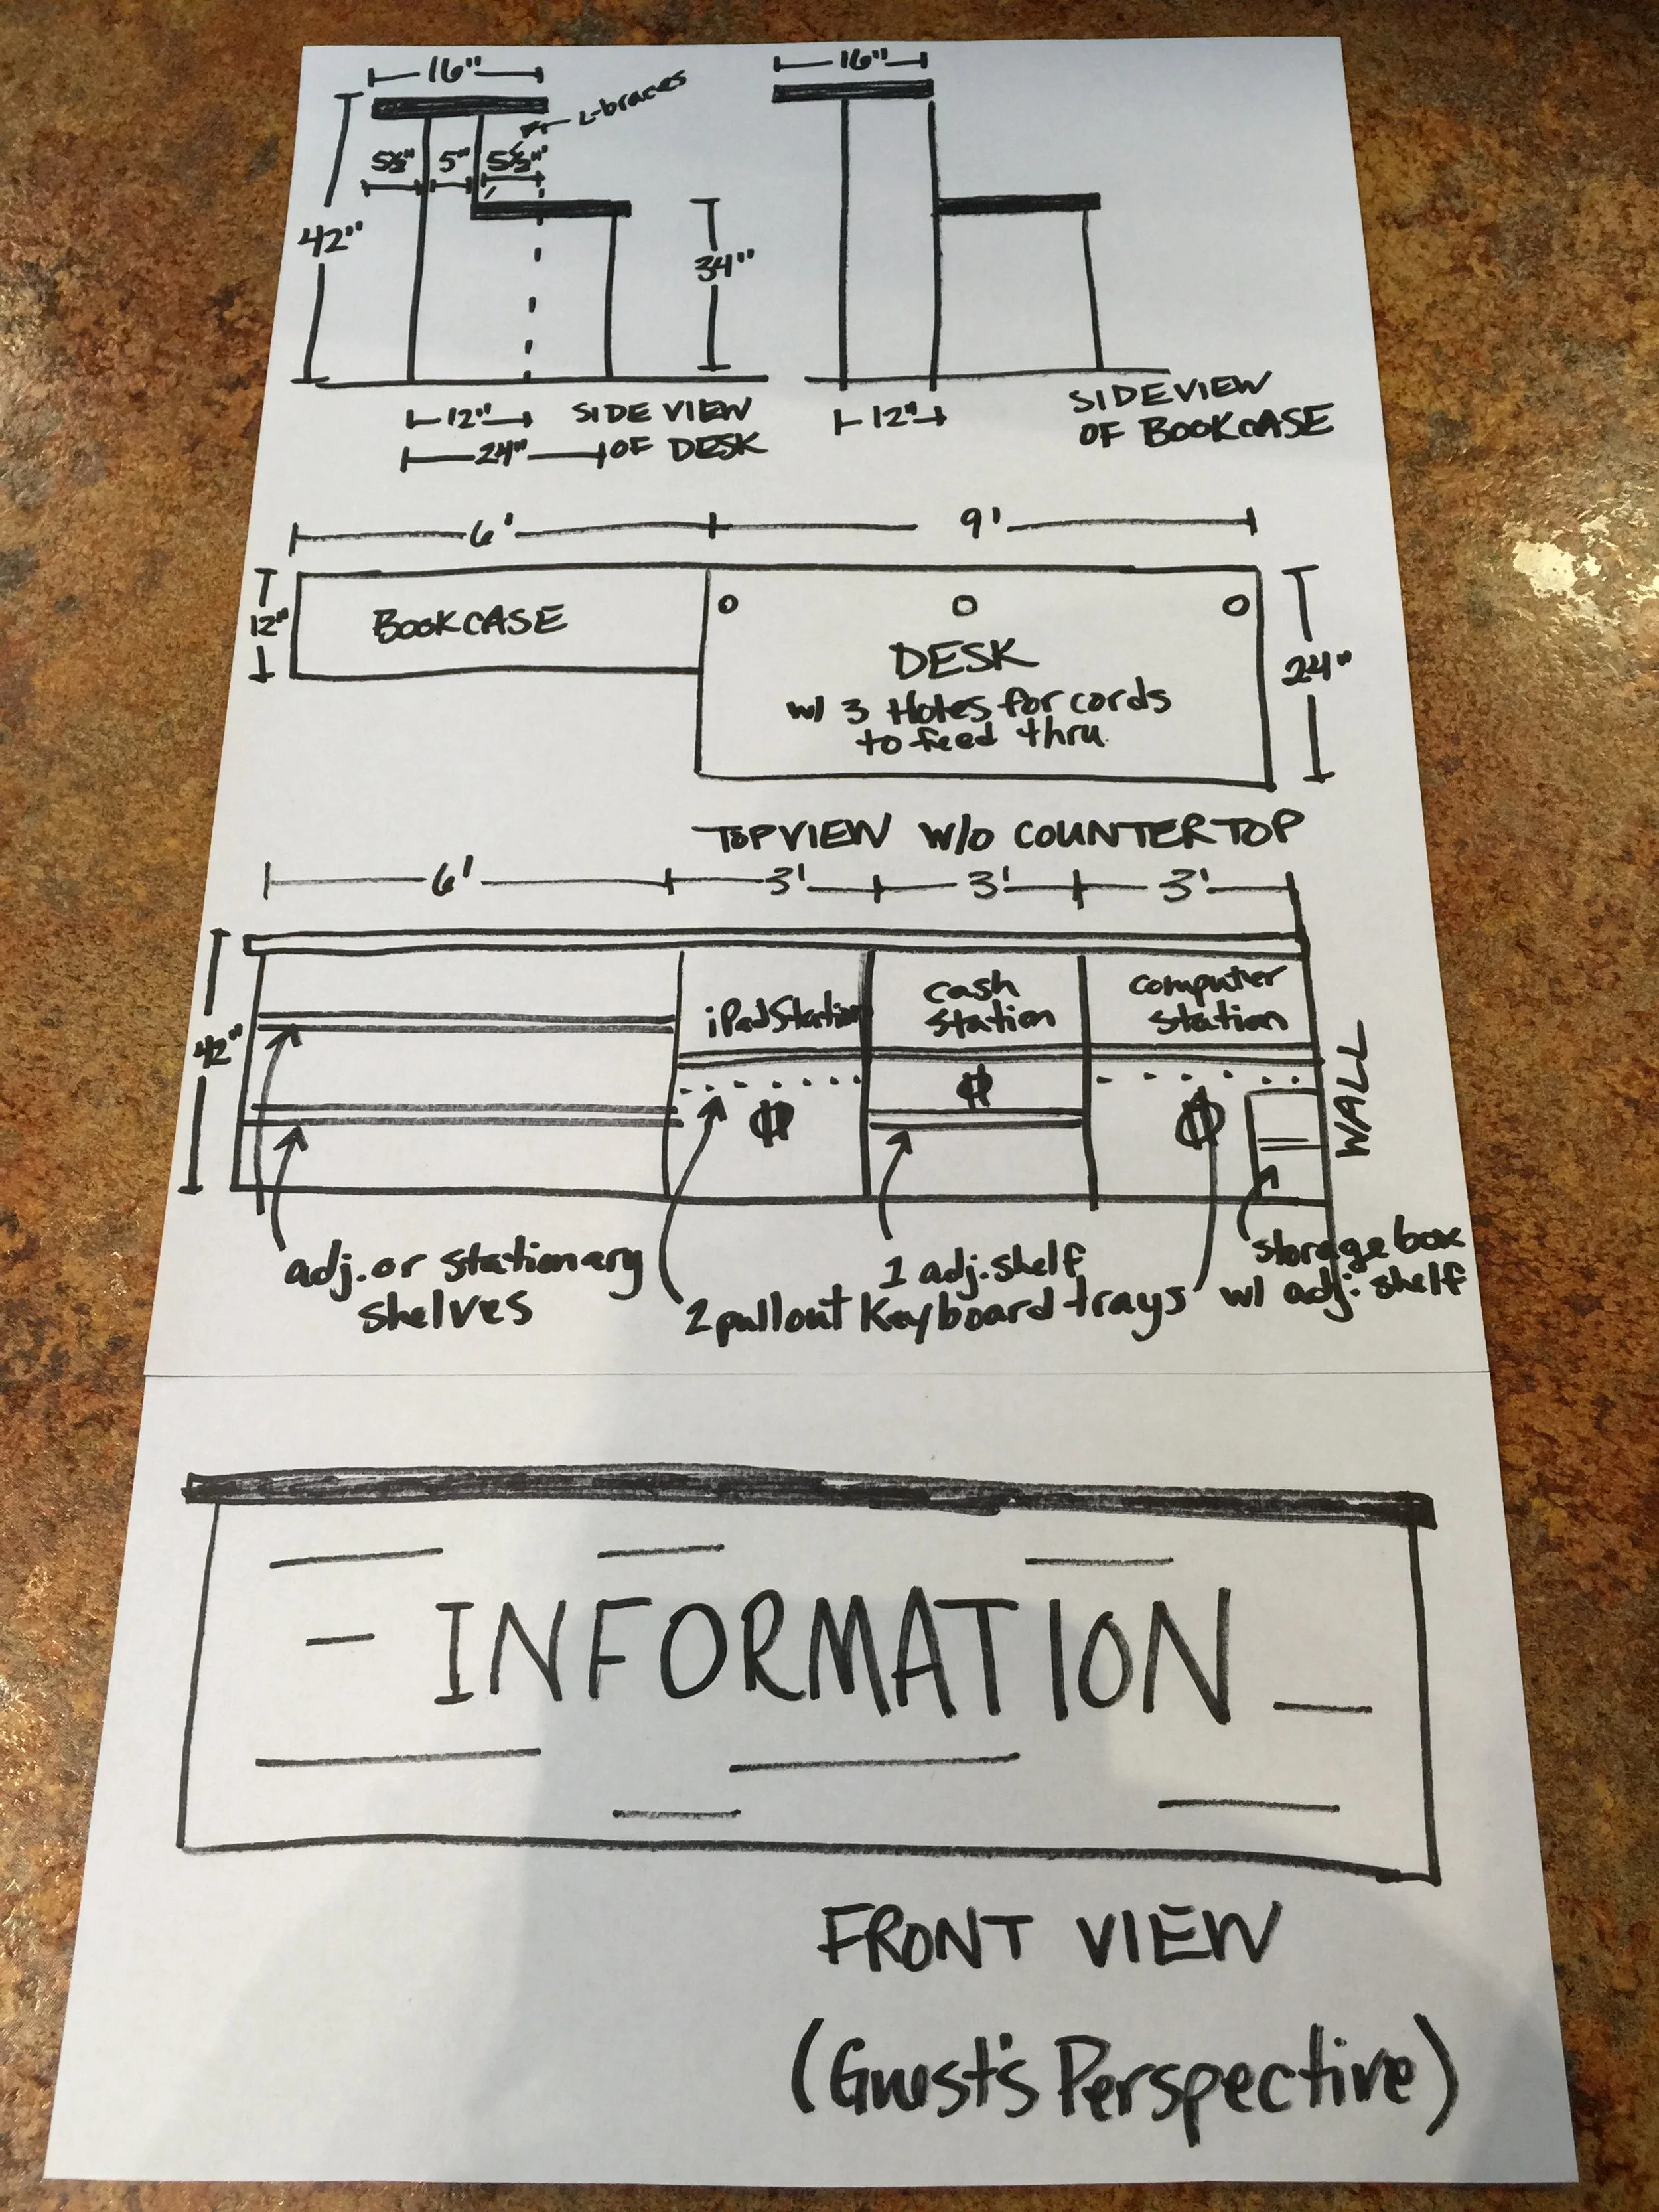 16"
16"
L-braces
5½" 5" 5½"
42"
34"
12" SIDE VIEW
24" OF DESK
12"
SIDEVIEW
OF BOOKCASE
6' 9'
12"
BOOKCASE
DESK
w/ 3 Holes for cords
to feed thru.
24"
TOPVIEW W/O COUNTERTOP
6' 3' 3' 3'
42"
iPad Station
cash
station
computer
station
WALL
adj. or stationary
shelves
1 adj. shelf
2 pullout Keyboard trays
storage box
w/ adj. shelf
INFORMATION
FRONT VIEW
(Guest's Perspective)